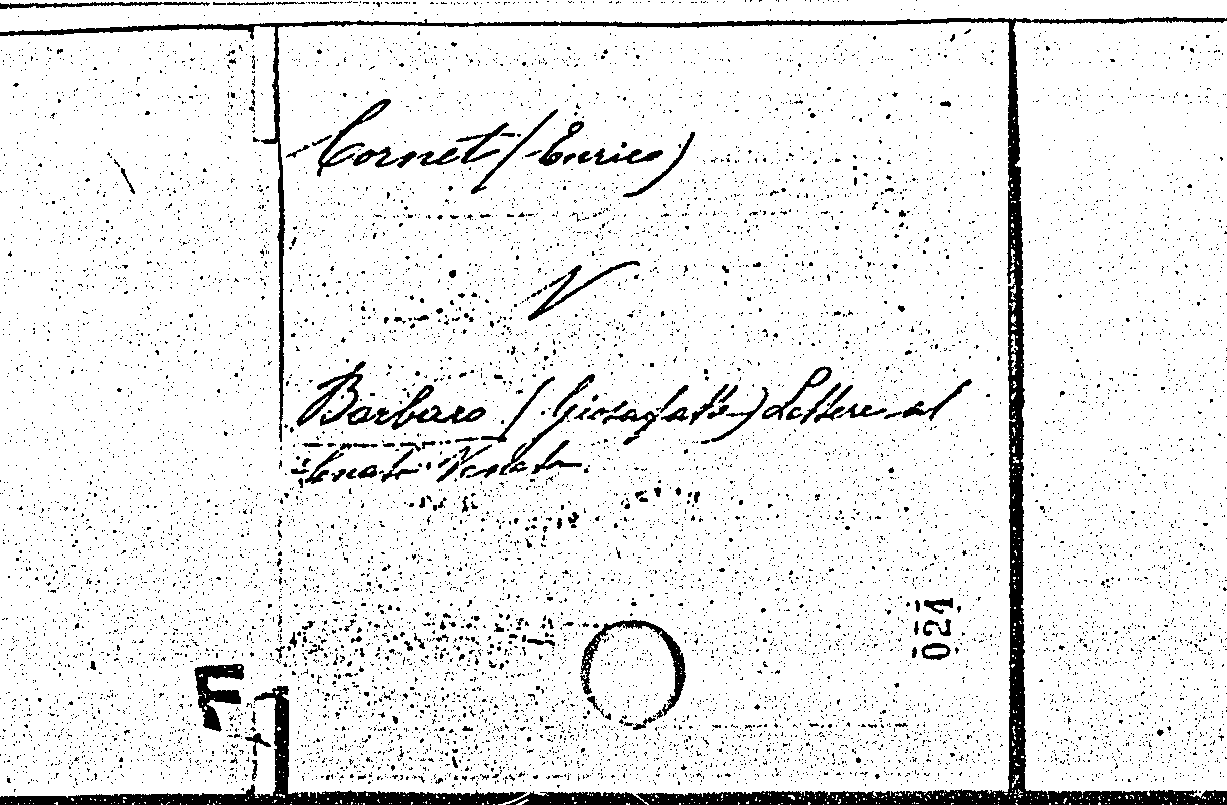 Cornet (Enrico)
V
Barbaro (Giosafatte) Lettere al
Senato Veneto.
024